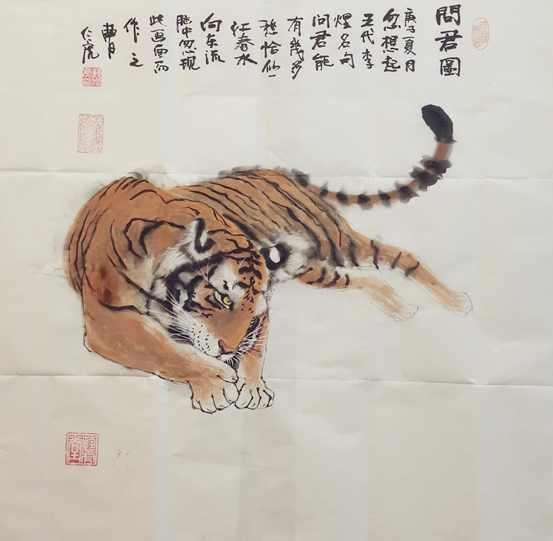 問君圖
庚子夏月
忽想起
五代李
煜名句
问君能
有幾多
愁恰似一
江春水
向东流
脑中忽现
此画面而
作之
仁虎